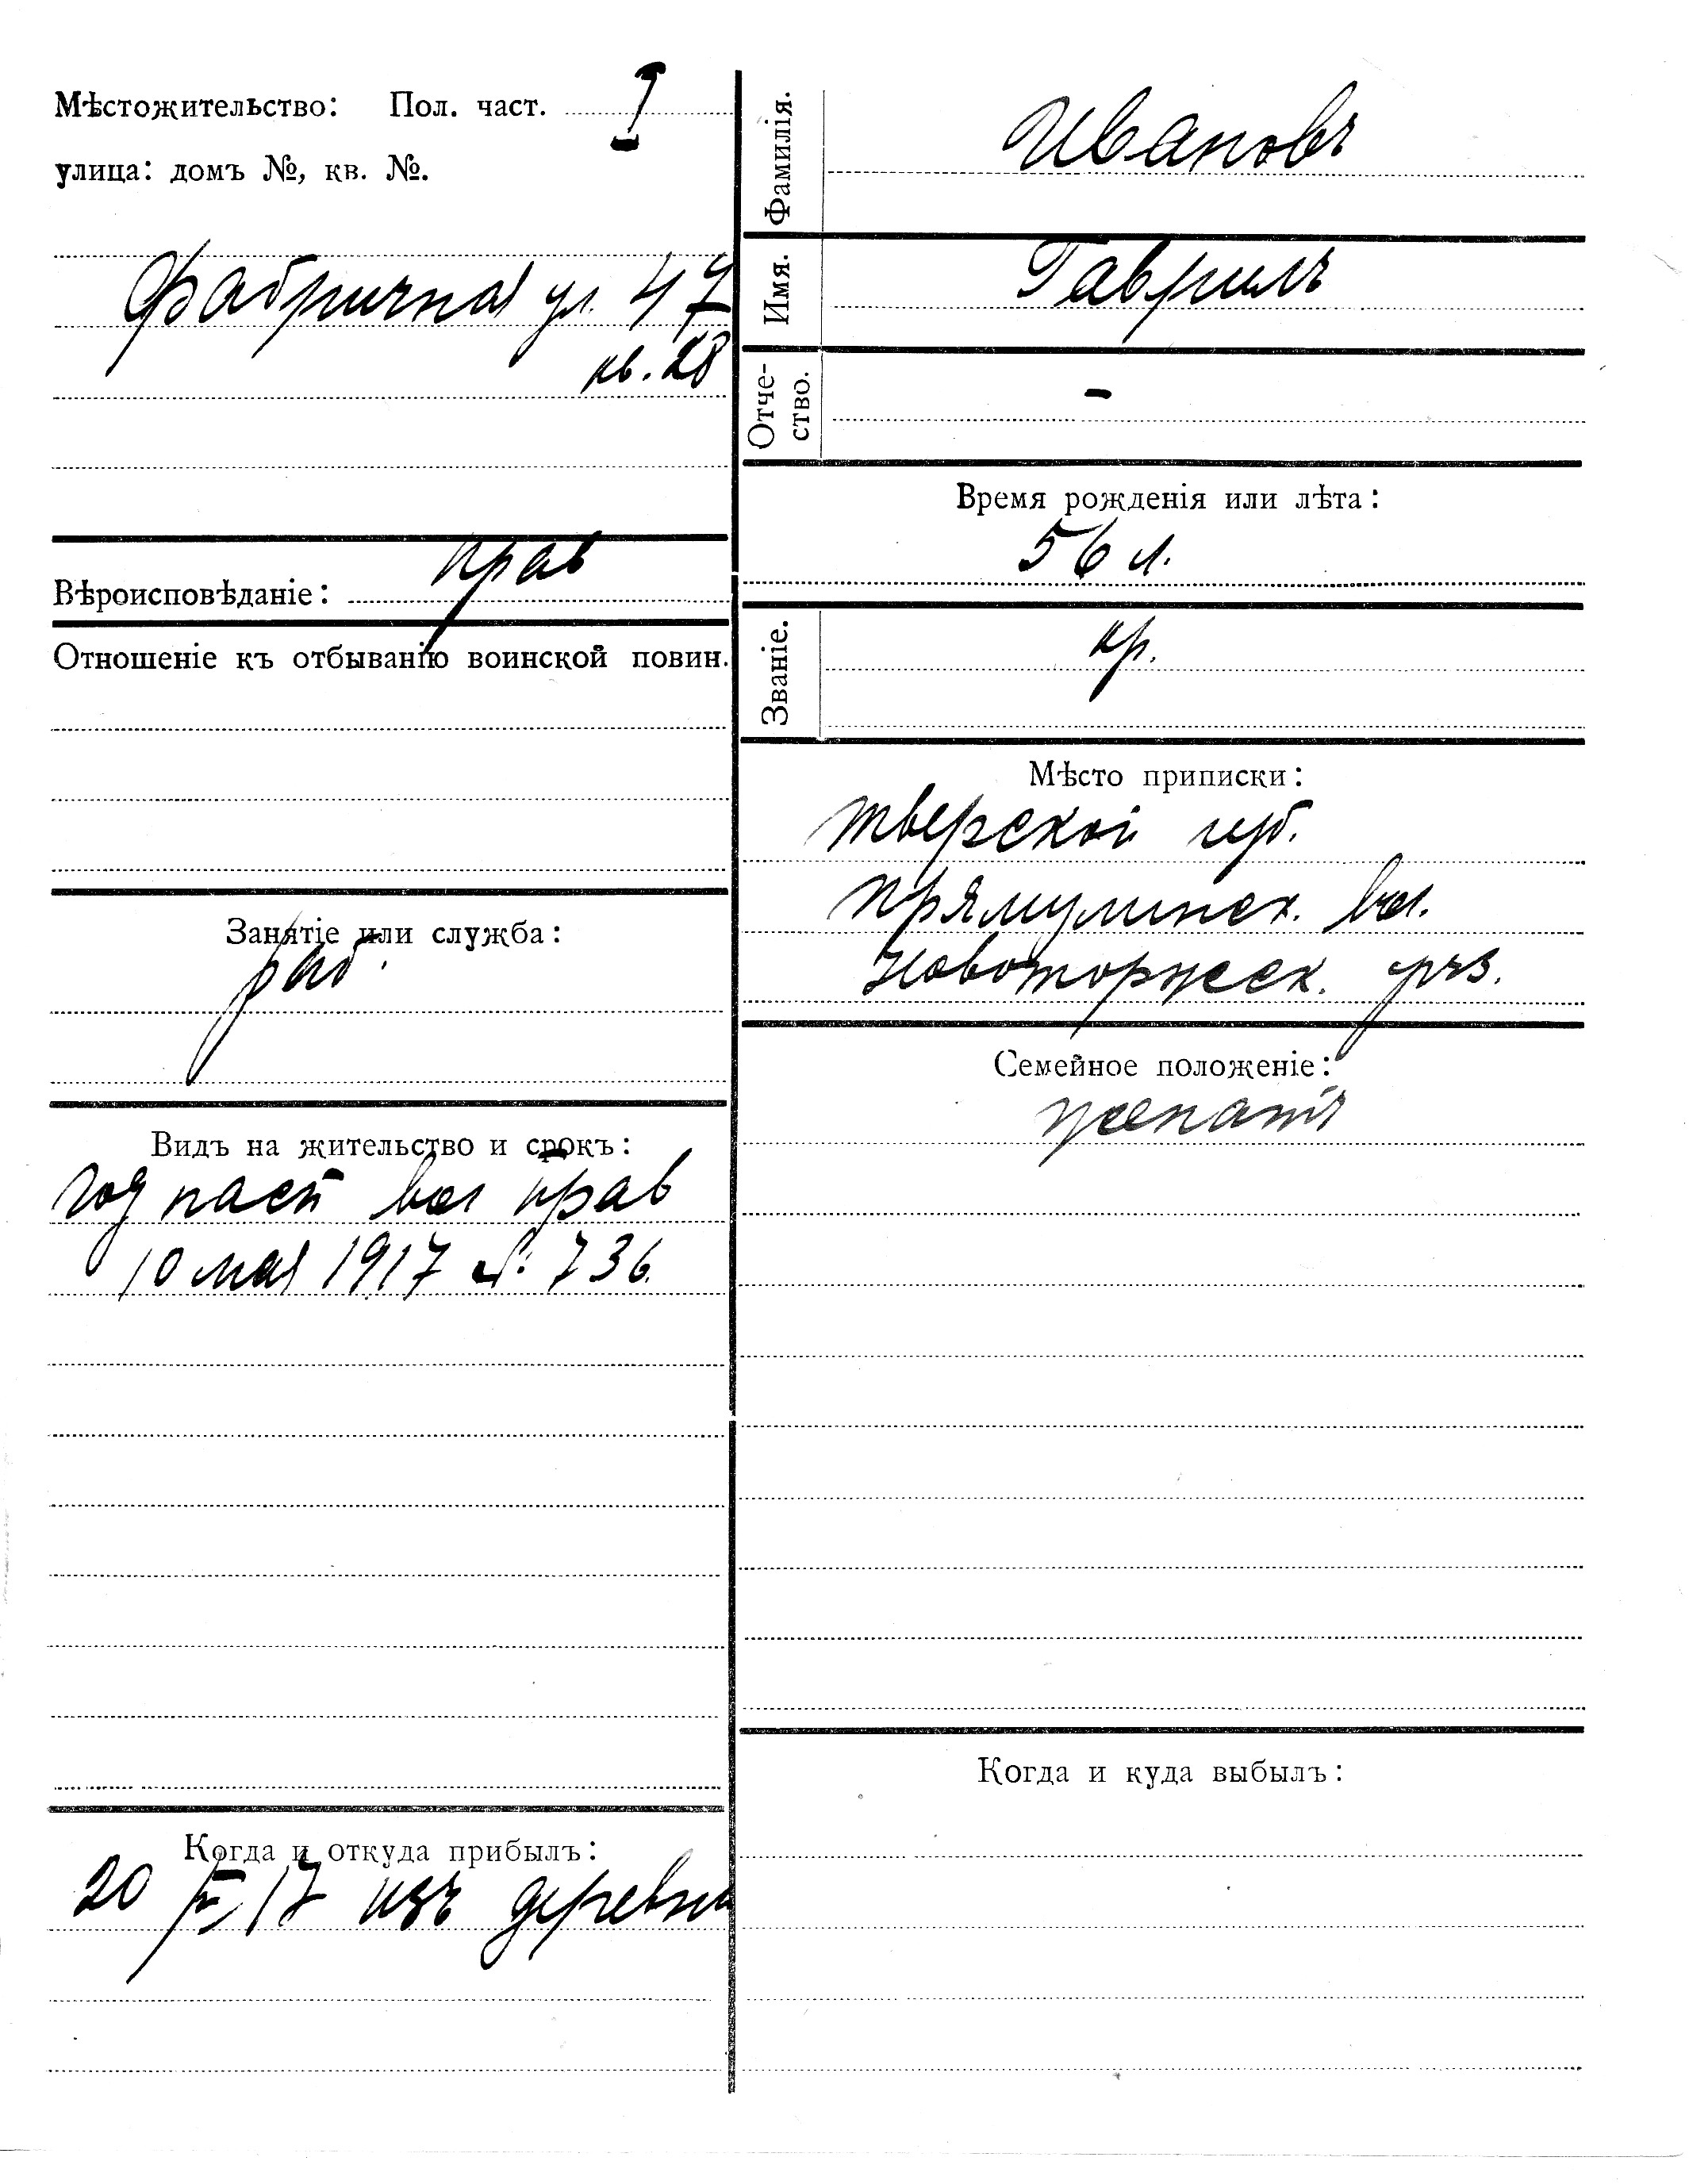 Мѣстожительство: Пол. част. I
улица: домъ №, кв. №.
Фабричная ул. 47
кв. 28
Вѣроисповѣданіе: прав
Отношеніе къ отбыванію воинской повин.
Занятіе или служба:
раб.
Видъ на жительство и срокъ:
год пасп вол прав
10 мая 1917 №: 736.
Когда и откуда прибылъ:
20 17 изъ деревни
Фамилія. Ивановъ
Имя. Гаврилъ
Отче-
ство. -
Время рожденія или лѣта:
56 л.
Званіе. кр.
Мѣсто приписки:
тверской губ.
прямулинск. вол.
Новоторжск. уѣз.
Семейное положеніе:
женатъ
Когда и куда выбылъ: